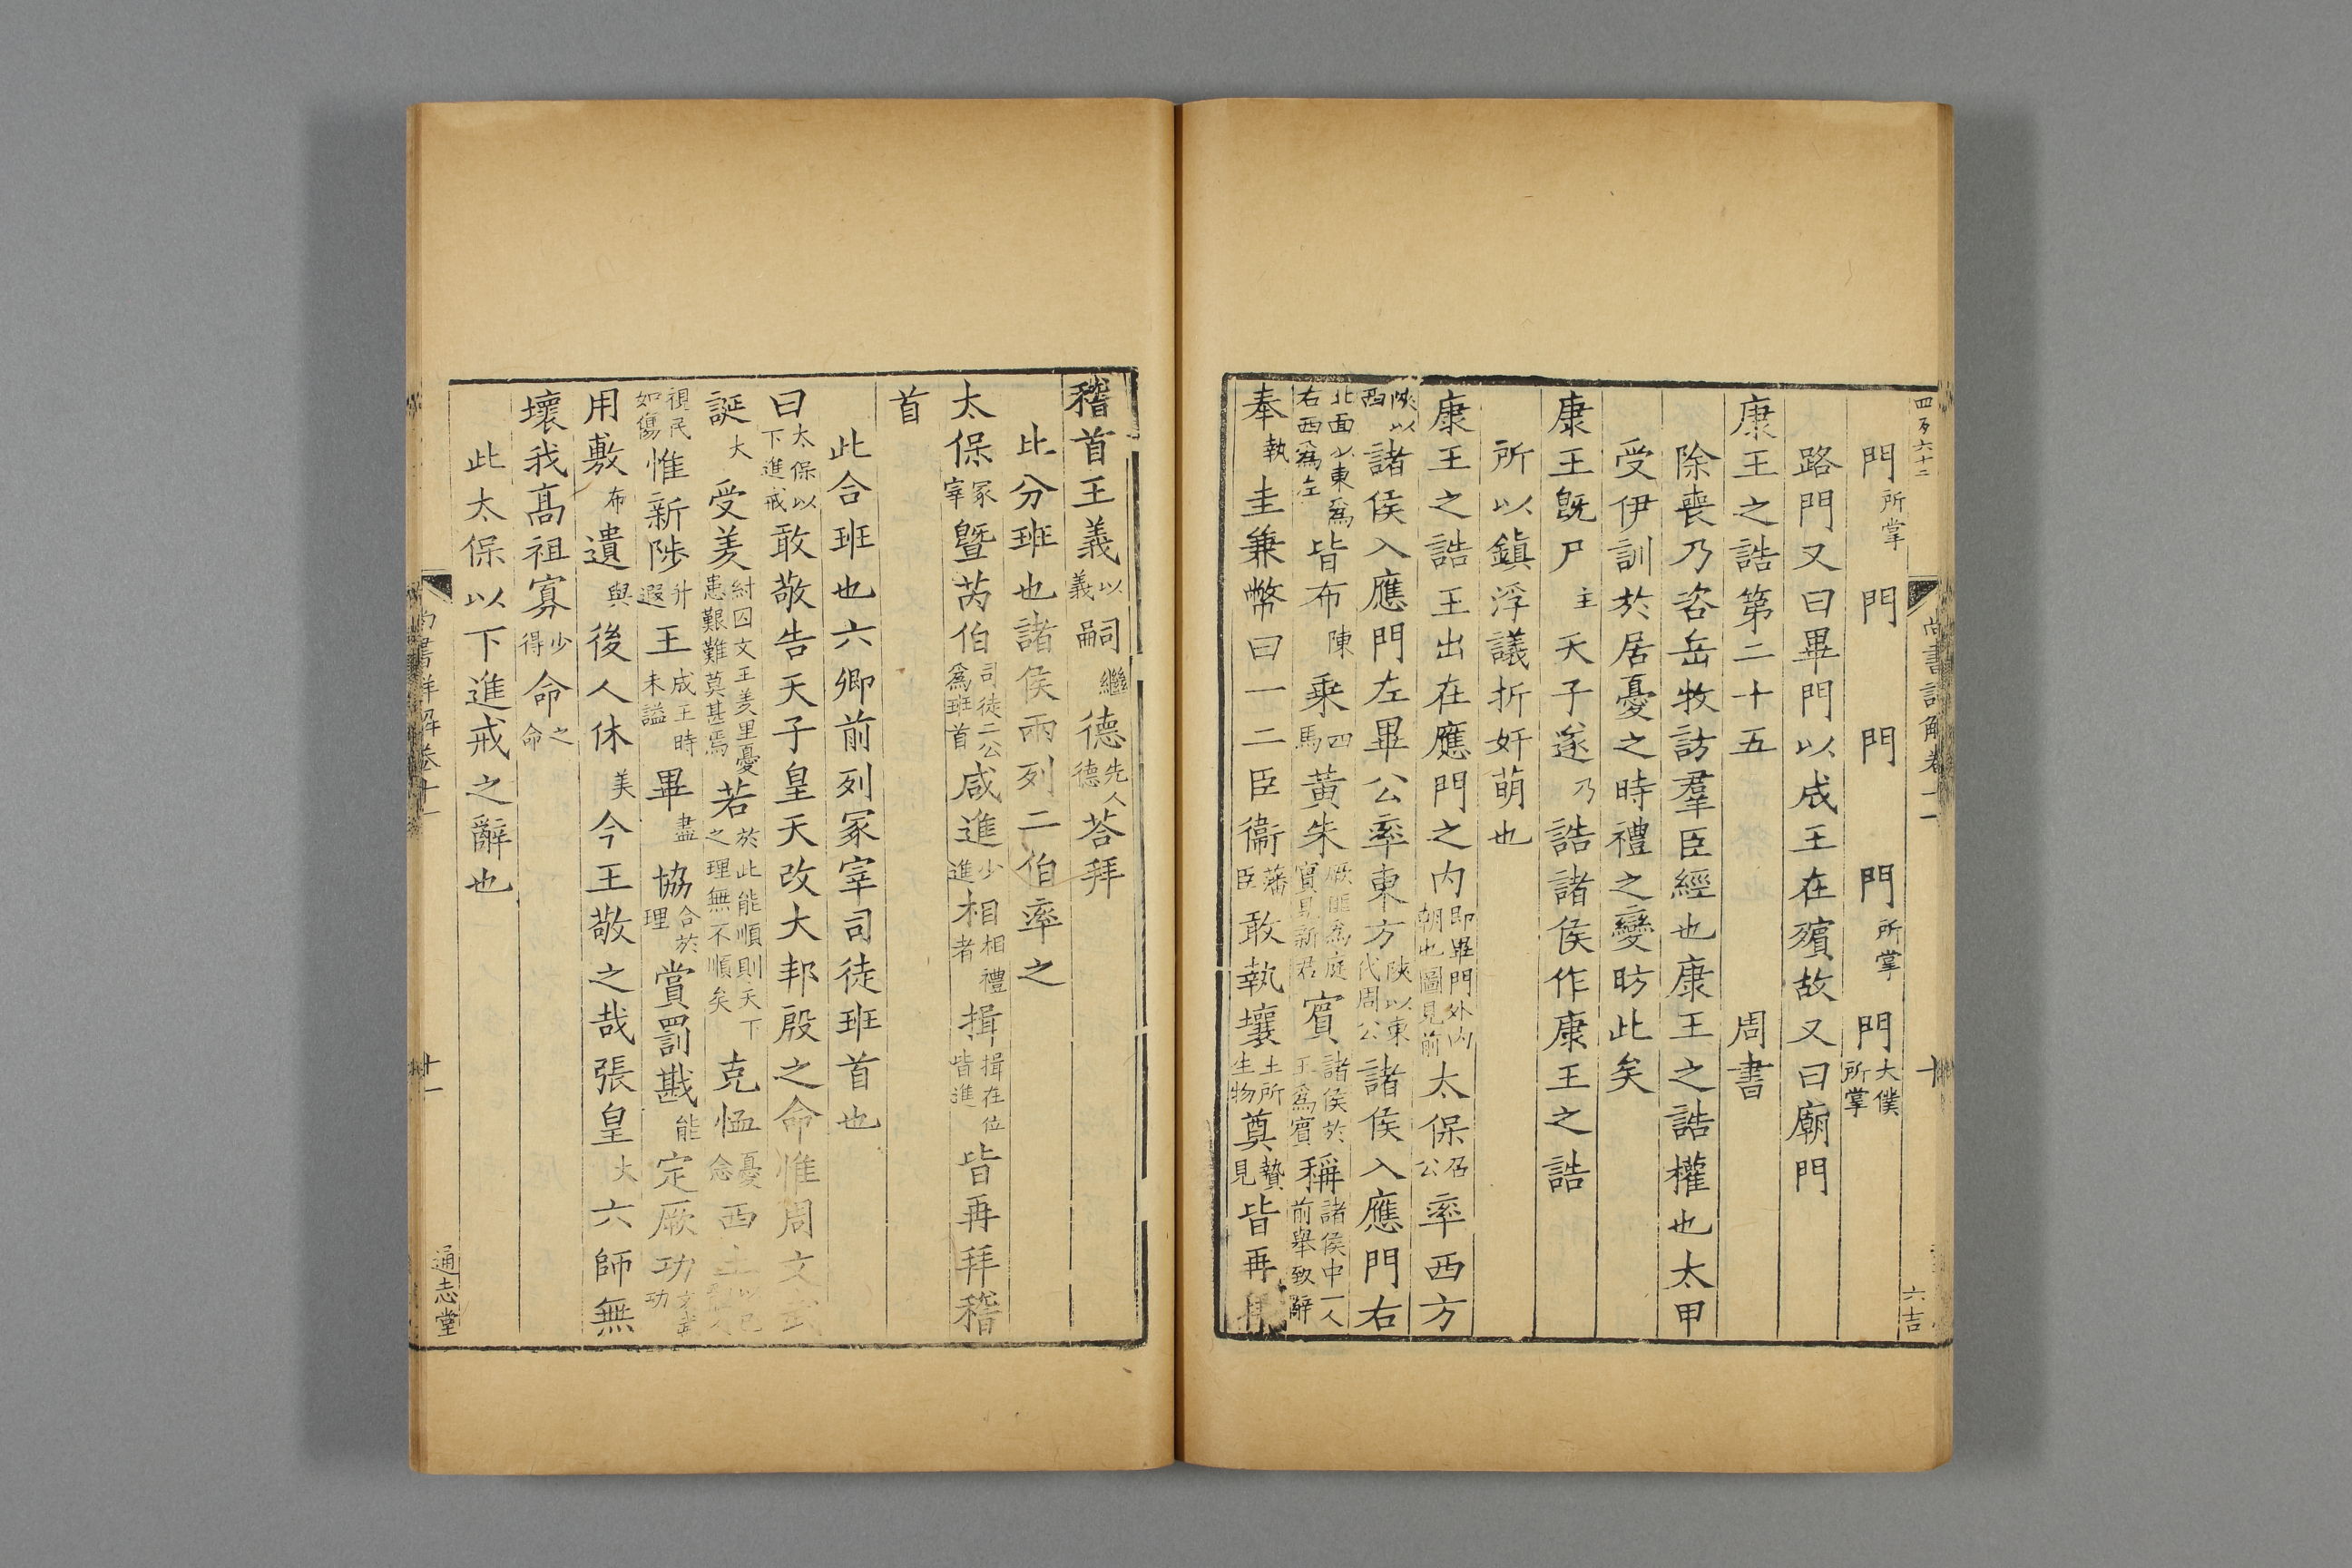 四百六十二
尚書詳解卷十一
十
六吉
門所掌門門門所掌門大僕所掌
路門又曰畢門以成王在殯故又曰廟門
康王之誥第二十五 周書
除喪乃咨岳牧訪羣臣經也康王之誥權也太甲
受伊訓於居憂之時禮之變昉此矣
康王旣尸主天子遂乃誥諸侯作康王之誥
所以鎮浮議折奸萌也
康王之誥王出在應門之內即畢門外內朝也圖見前太保召公率西方
陜以西諸侯入應門左畢公率東方陜以東代周公諸侯入應門右
北面以東爲右西爲左皆布陳乘四馬黃朱厥篚爲庭實見新君賓諸侯於王爲賓稱諸侯中一人前舉致辭
奉執圭兼幣曰一二臣衞藩臣敢執壤土所生物奠贄見皆再拜
稽首王義以義嗣繼德先人德荅拜
此分班也諸侯兩列二伯率之
太保冢宰曁芮伯司徒二公爲班首咸進少進相相禮者揖揖在位皆進皆再拜稽
首
此合班也六卿前列冢宰司徒班首也
曰太保以下進戒敢敬告天子皇天改大邦殷之命惟周文武
誕大受羑紂囚文王羑里憂患艱難莫甚焉若於此能順則天下之理無不順矣克恤憂念西土
視民如傷惟新陟升遐王成王時未謚畢盡協合於理賞罰戡能定厥功文武功
用敷布遺與後人休美今王敬之哉張皇大六師無
壞我高祖寡少得命之命
此太保以下進戒之辭也
尚書詳解卷十一
十一
通志堂